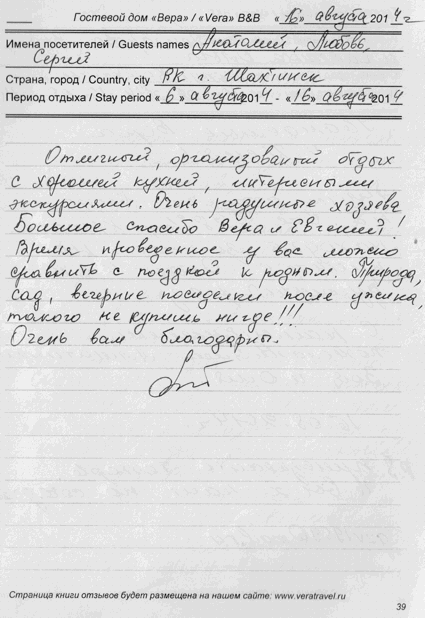 Гостевой дом «Вера» / «Vera» B&B « 16 » августа 2014 г
Имена посетителей / Guests names Анатолий, Любовь,
Сергий
Страна, город / Country, city РК г. Шахтинск
Период отдыха / Stay period « 6 » августа 2014 - « 16 » августа 2014
Отличный, организованый отдых
с хорошей кухней, интересными
экскурсиями. Очень радушные хозяева
Большое спасибо Вера и Евгений!
Время проведенное у вас можно
сравнить с поездкой к родным. Природа,
сад, вечерние посиделки после ужина,
такого не купишь нигде!!!
Очень вам благодарны.
Страница книги отзывов будет размещена на нашем сайте: www.veratravel.ru
39